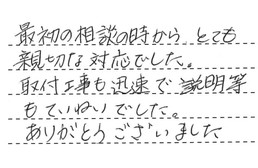 最初の相談の時から とても
親切な対応でした。
取付工事も迅速で 説明等
もていねいでした。
ありがとうございました